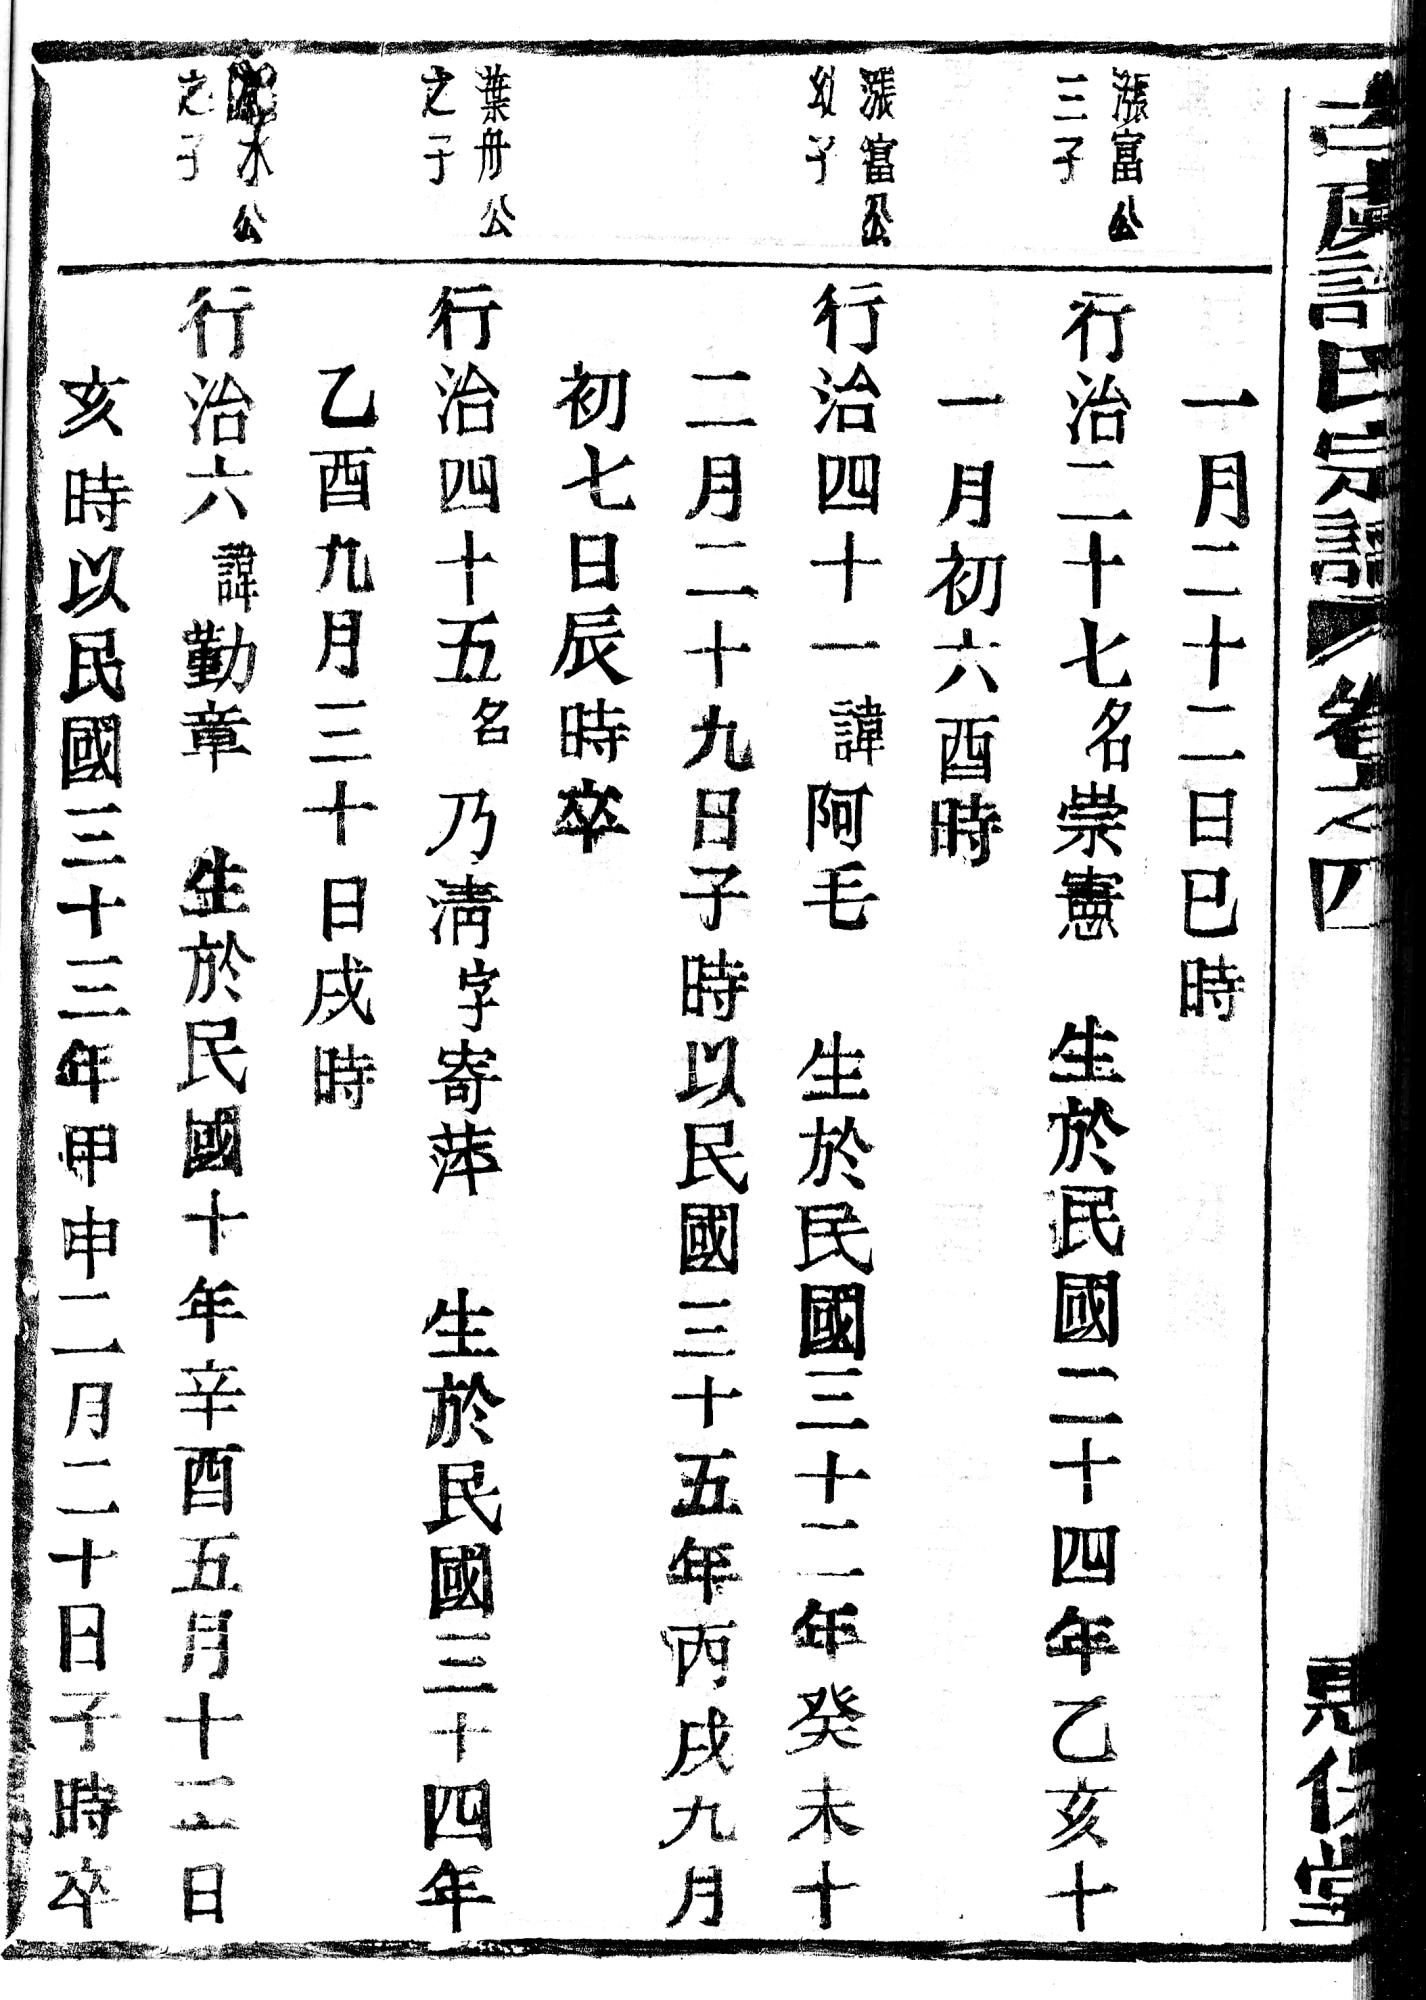 古虞許氏宗譜 卷之四
一月二十二日巳時
漲富公
三子
行治二十七名崇憲 生於民國二十四年乙亥十
一月初六酉時
漲富公
幼子
行治四十一諱阿毛 生於民國三十二年癸未十
二月二十九日子時以民國三十五年丙戌九月
初七日辰時卒
葉舟公
之子
行治四十五名乃淸字寄萍 生於民國三十四年
乙酉九月三十日戌時
水公
之子
行治六諱勤章 生於民國十年辛酉五月十二日
亥時以民國三十三年甲申二月二十日子時卒